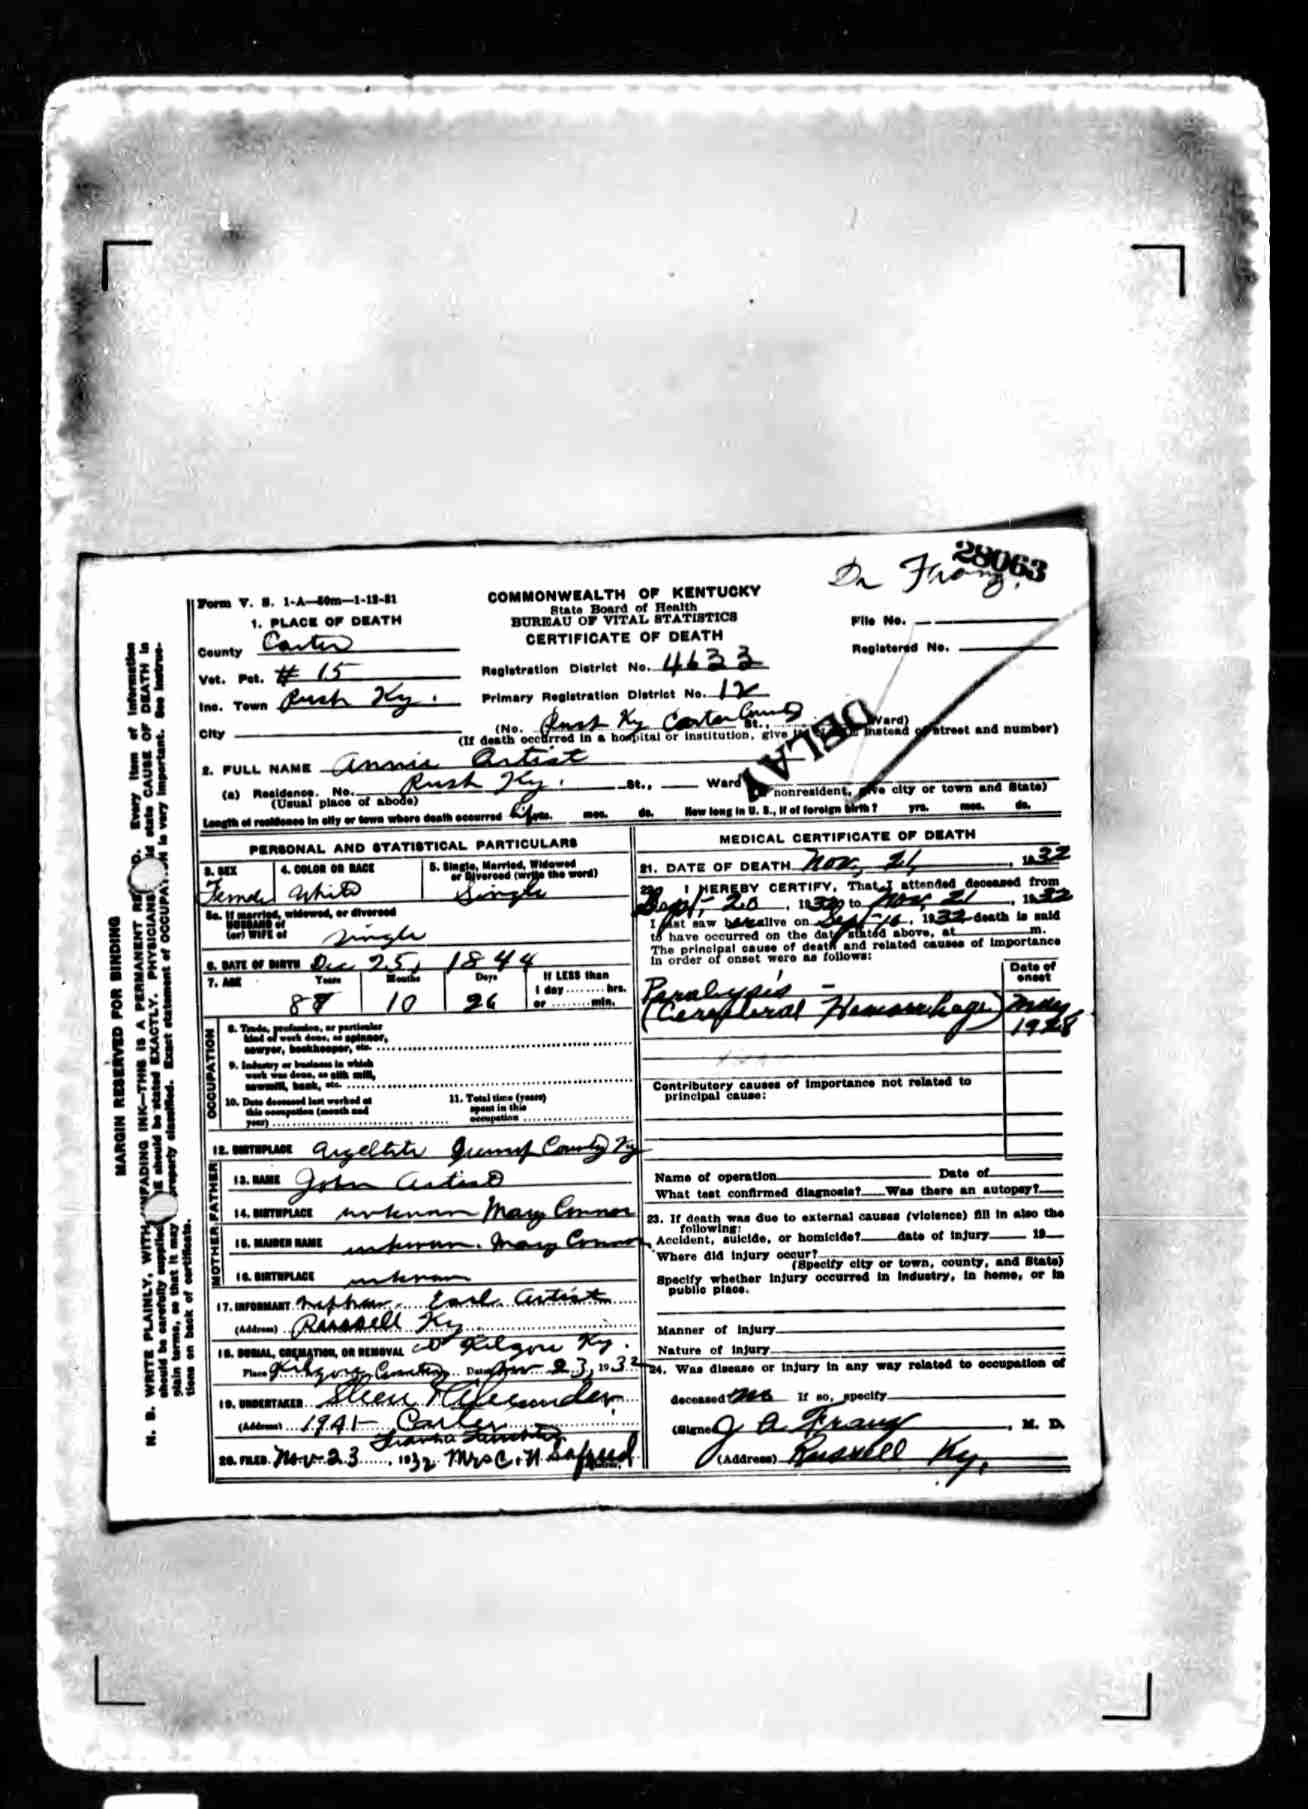 28063
Dr Franz.
Form V. S. 1-A—50m—1-12-31
COMMONWEALTH OF KENTUCKY
State Board of Health
BUREAU OF VITAL STATISTICS
CERTIFICATE OF DEATH
File No.
Registered No.
1. PLACE OF DEATH
County Carter
Vot. Pct. # 15
Inc. Town Rush Ky.
City
Registration District No. 4633
Primary Registration District No. 12
(No. Rush Ky Carter County St., Ward)
(If death occurred in a hospital or institution, give its instead of street and number)
DELAY
2. FULL NAME Annie Artist
(a) Residence. No. Rush Ky. St., Ward
(Usual place of abode) nonresident, give city or town and State)
Length of residence in city or town where death occurred yrs. mos. ds. How long in U. S., if of foreign birth? yrs. mos. ds.
PERSONAL AND STATISTICAL PARTICULARS
3. SEX
Female
4. COLOR OR RACE
White
5. Single, Married, Widowed or Divorced (write the word)
Single
5a. If married, widowed, or divorced
HUSBAND of
(or) WIFE of single
6. DATE OF BIRTH Dec 25, 1844
7. AGE Years Months Days If LESS than
1 day hrs.
87 10 26 or min.
OCCUPATION
8. Trade, profession, or particular
kind of work done, as spinner,
sawyer, bookkeeper, etc.
9. Industry or business in which
work was done, as silk mill,
sawmill, bank, etc.
10. Date deceased last worked at
this occupation (month and
year)
11. Total time (years)
spent in this
occupation
12. BIRTHPLACE Argellite Greenup County Ky
FATHER
13. NAME John Artist
14. BIRTHPLACE unknown Mary Connor
MOTHER
15. MAIDEN NAME unknown. Mary Connor
16. BIRTHPLACE unknown
17. INFORMANT nephew Earl Artist
(Address) Russell Ky
18. BURIAL, CREMATION, OR REMOVAL Kilgore Ky.
Place Kilgore Cemetery Date Nov 23, 1932
19. UNDERTAKER Steen & Alexander
(Address) 1941- Carter
20. FILED Nov 23, 1932 Mrs C. N.
MEDICAL CERTIFICATE OF DEATH
21. DATE OF DEATH Nov, 21, 1932
22. I HEREBY CERTIFY, That I attended deceased from
Sept, 20, 1932 to Nov, 21, 1932
I last saw her alive on Sept-16, 1932 death is said
to have occurred on the date stated above, at m.
The principal cause of death and related causes of importance
in order of onset were as follows:
Date of
onset
Paralysis -
(Cerebral Hemorrhage) May
1928
Contributory causes of importance not related to
principal cause:
Name of operation Date of
What test confirmed diagnosis? Was there an autopsy?
23. If death was due to external causes (violence) fill in also the
following:
Accident, suicide, or homicide? date of injury 19
Where did injury occur?
(Specify city or town, county, and State)
Specify whether injury occurred in industry, in home, or in
public place.
Manner of injury
Nature of injury
24. Was disease or injury in any way related to occupation of
deceased no If so, specify
(Signed) J A Franz, M. D.
(Address) Russell Ky.
MARGIN RESERVED FOR BINDING
N. B. WRITE PLAINLY, WITH UNFADING INK—THIS IS A PERMANENT RECORD. Every item of information
should be carefully supplied. AGE should be stated EXACTLY. PHYSICIANS should state CAUSE OF DEATH in
plain terms, so that it may be properly classified. Exact statement of OCCUPATION is very important. See instruc-
tions on back of certificate.